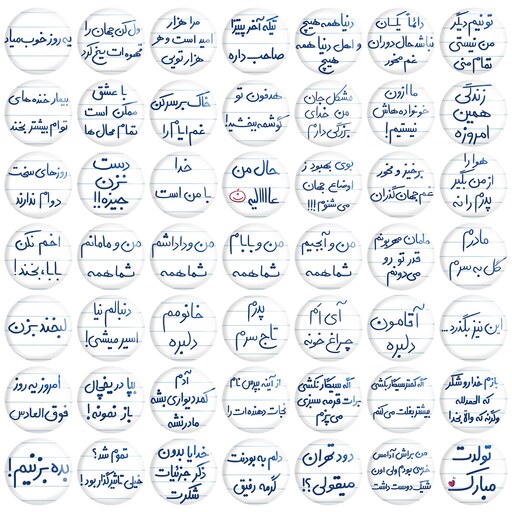 تو نیم دیگر
من نیستی
تمام منی
دائماً یکسان
نباشد حال دوران
غم مخور
دنیا همه هیچ
و اهل دنیا همه
هیچ
تیکه آخر پیتزا
صاحب داره
مرا هزار
امید است و هر
هزار تویی
ول کن جهان را
قهوه ات یخ کرد
یه روز خوب میاد
زندگی
همین
امروزه
ما ازون
خونواده هاش
نیستیم!
مشکل جان
من خدای
بزرگی دارم
هدفون تو
گوشمه ببخشید!
خاک بر سر کن
غم ایام را
با عشق
ممکن است
تمام محال ها
بیمار خنده های
توام بیشتر بخند
هوا را
از من بگیر
پدرم را نه
برخیز و مخور
غم جهان گذران
بوی بهبود ز
اوضاع جهان
می شنوم!!!
حال من
عاااالیه
خدا
با من است
دست
نزن
جیزه!!
روزهای سخت
دوام ندارند
مادرم
گل به سرم
مامان مهربونم
قدر تو رو
می دونم
من و آبجیم
شما همه
من و بابام
شما همه
من و داداشم
شما همه
من و مامانم
شما همه
اخم نکن
بابا، بخند!
این نیز بگذرد...
آقامون
دلبره
آی اَم
چراغ خونه
پدرم
تاج سرم
خانومم
دلبره
دنبالم نیا
اسیر میشی!
لبخند بزن
بازم خدا رو شکر
که الحمدلله
وگرنه که والا بخدا
اگه کمتر سیگار بکشی
بیشتر بغلت می کنم
اگه سیگار نکشی
برات قرمه سبزی
می پزم
از آینه بپرس نام
نجات دهنده ات را
آدم
کمد دیواری بشه
مادر نشه
بپا در یخچال
باز نمونه!
امروز یه روز
فوق العادس
تولدت
مبارک
من براش آدامس
خرسی بودم ولی اون
شیک دوست داشت
دود تهران
میقولی؟!
دلم به بودنت
گرمه رفیق
خدایا بدون
ذکر جزئیات
شکرت
تموم شد؟
خیلی تاثیرگذار بود!
بده بزنیم!